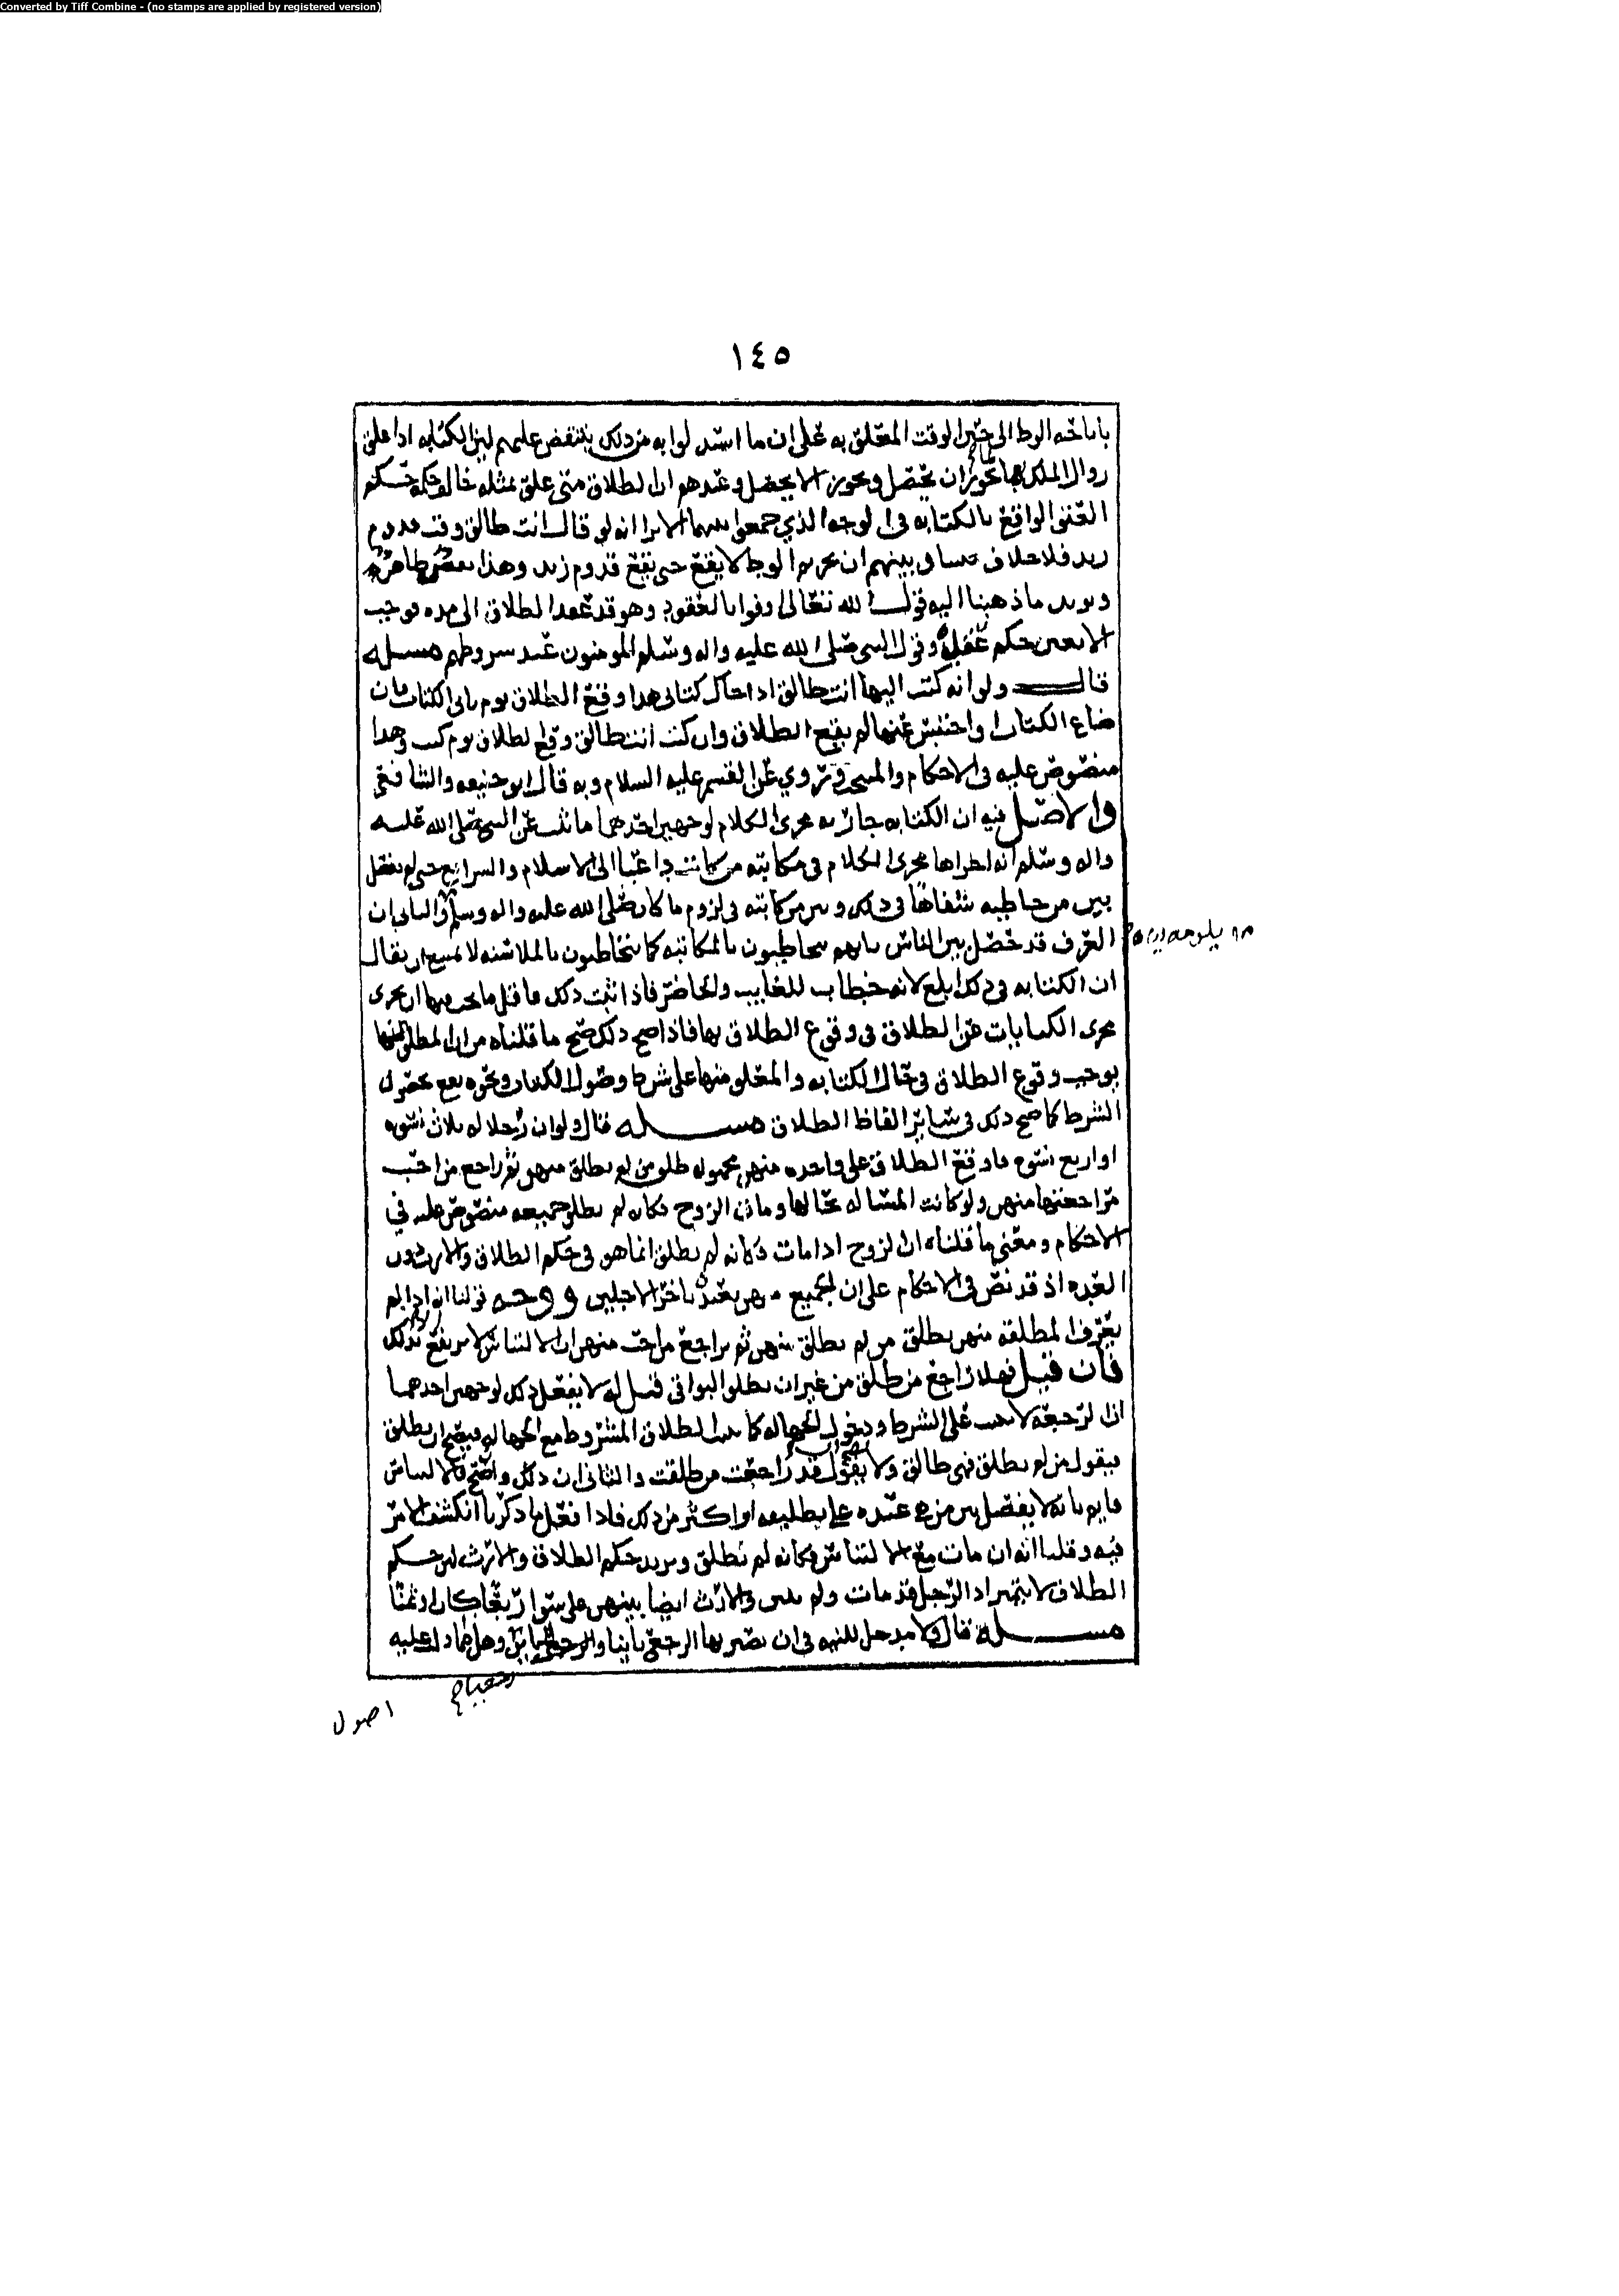 Converted by Tiff Combine - (no stamps are applied by registered version)
١٤٥
باباحه الوطء الى حين الوقت المعلق به على ان ما استدلوا به من ذلك ينتقض عليهم لان الكتابه اذا علق
زوال الملك بها يجوز ان يحصل ويجوز الا يحصل وعندهم ان الطلاق متى علق بمثله خالف حكمه حكم
العتق الواقع بالكتابه في الوجه الذي جمعوا بينهما الا ترا انه لو قال انت طالق وقت قدوم
زيد فلا خلاف بيننا وبينهم ان تحريم الوطء لا يقع حتى يقع قدوم زيد وهذا ظاهر
ويويد ما ذهبنا اليه قول الله تعالى اوفوا بالعقود وهو قد عقد الطلاق الى مده فوجب
الا يتغير حكم عقده وقول النبي صلى الله عليه واله وسلم المومنون عند شروطهم مسله
قال ولو انه كتب اليها انت طالق اذا جاك كتابي هذا وقع الطلاق يوم ياتي الكتاب فان
ضاع الكتاب او احتبس عنها لم يقع الطلاق وان كتب انت طالق وقع الطلاق يوم كتب وهذا
منصوص عليه في الاحكام والمنتخب ومروي عن القسم عليه السلام وبه قال ابو حنيفه والشافعي
والاصل فيه ان الكتابه جاريه مجرى الكلام لوجهين احدهما ما ثبت عن النبي صلى الله عليه
واله وسلم انه اجراها مجرى الكلام في مكاتبته من كاتب داعيا الى الاسلام والشرايع حتى لم يفصل
بين من خاطبه شفاها في ذلك وبين من كاتبه في لزوم ما كان صلى الله عليه واله وسلم والثاني ان
العرف قد حصل بين الناس بانهم يتخاطبون بالمكاتبه كما يتخاطبون بالملاسنه لا يمتنع ان يقال
ان الكتابه في ذلك ابلغ لانه خطاب للغايب والحاضر فاذا ثبت ذلك فاقل ما يجب فيها ان تجرى
مجرى الكنايات عن الطلاق في وقوع الطلاق بها فاذا صح ذلك صح ما قلناه من ان المطلق منها
يوجب وقوع الطلاق في حال الكتابه والمعلق منها على شرط وصول الكتاب ونحوه يقع بحصول
الشرط كما صح ذلك في ساير الفاظ الطلاق مسله قال ولو ان رجلا له ثلاث نسوه
او اربع نسوه فاوقع الطلاق على واحده منهن مجهوله طلق من لم يطلق منهن ثم راجع من احب
مراجعتها منهن ولو كانت المساله بحالها ومات الزوج فكانه لم يطلق جميعه منصوص عليه في
الاحكام ومعنى ما قلناه ان الزوج اذا مات فكانه لم يطلق انما هو في حكم الطلاق والارث دون
العده اذ قد نص في الاحكام على ان الجميع منهن يعتد باخر الاجلين ووجه قولنا انه اذا لم
يعرف المطلقه منهن يطلق من لم يطلق منهن ثم يراجع من احب منهن ان الالتباس يرتفع بذلك
فان قيل فهلا راجع من طلق من غير ان يطلق البواقي قيل له لا يفعل ذلك لوجهين احدهما
ان الرجعه لا تثبت على الشرط ودخول الجهاله كما يثبت الطلاق المشروط مع الجهاله فيصح ان يطلق
فيقول من لم يطلق فهي طالق ولا يقول قد راجعت من طلقت والثاني ان ذلك والالتباس
قايم بانه لا يفصل بين من هي عنده على تطليقه او اكثر من ذلك فاذا فعل ما ذكرنا انكشف الامر
فيه وقلنا انه ان مات مع الالتباس فكانه لم يطلق ونريد حكم الطلاق والارث لان حكم
الطلاق لا يتميز اذ الرجل قد مات ولم يبين والارث ايضا بينهن على سوا ربعا كان او ثمنا
مسله قال ولا مدخل للنيه في ان تصير بها الرجعي باينا والرجعي وهذا مما دل عليه
اصول